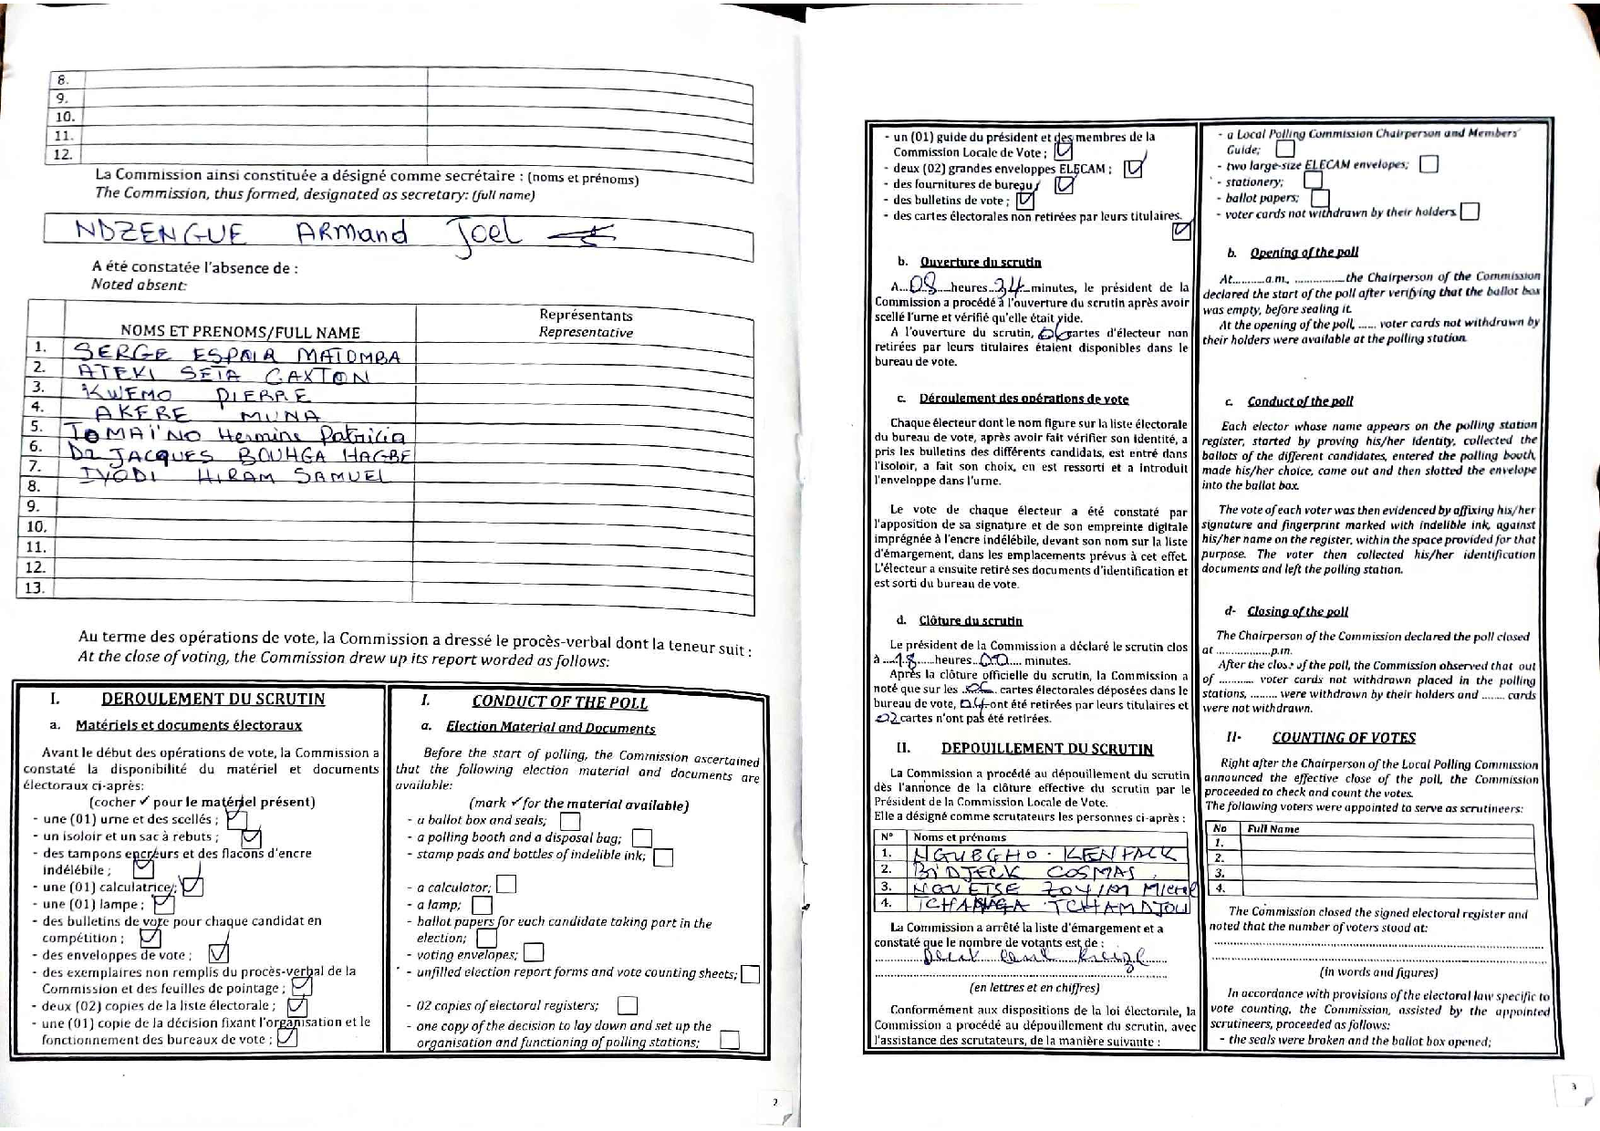 8.
9.
10.
11.
12.
La Commission ainsi constituée a désigné comme secrétaire : (noms et prénoms)
The Commission, thus formed, designated as secretary: (full name)
NDZENGUE ARMand Joel
A été constatée l'absence de :
Noted absent:
NOMS ET PRENOMS/FULL NAME
Représentants
Representative
1. SERGE ESPOIR MATOMBA
2. ATEKI SETA CAXTON
3. KWEMO PIERRE
4. AKERE MUNA
5. TOMAÏNO Hermine Patricia
6. Dr JACQUES BOUHGA HAGBE
7. IYODI HIRAM SAMUEL
8.
9.
10.
11.
12.
13.
Au terme des opérations de vote, la Commission a dressé le procès-verbal dont la teneur suit :
At the close of voting, the Commission drew up its report worded as follows:
I. DEROULEMENT DU SCRUTIN
a. Matériels et documents électoraux
Avant le début des opérations de vote, la Commission a
constaté la disponibilité du matériel et documents
électoraux ci-après:
(cocher ✓ pour le matériel présent)
- une (01) urne et des scellés ;
- un isoloir et un sac à rebuts ;
- des tampons encreurs et des flacons d'encre
indélébile ;
- une (01) calculatrice;
- une (01) lampe ;
- des bulletins de vote pour chaque candidat en
compétition ;
- des enveloppes de vote ;
- des exemplaires non remplis du procès-verbal de la
Commission et des feuilles de pointage ;
- deux (02) copies de la liste électorale ;
- une (01) copie de la décision fixant l'organisation et le
fonctionnement des bureaux de vote ;
I. CONDUCT OF THE POLL
a. Election Material and Documents
Before the start of polling, the Commission ascertained
that the following election material and documents are
available:
(mark ✓ for the material available)
- a ballot box and seals;
- a polling booth and a disposal bag;
- stamp pads and bottles of indelible ink;
- a calculator;
- a lamp;
- ballot papers for each candidate taking part in the
election;
- voting envelopes;
- unfilled election report forms and vote counting sheets;
- 02 copies of electoral registers;
- one copy of the decision to lay down and set up the
organisation and functioning of polling stations;
2
- un (01) guide du président et des membres de la
Commission Locale de Vote ;
- deux (02) grandes enveloppes ELECAM ;
- des fournitures de bureau ;
- des bulletins de vote ;
- des cartes électorales non retirées par leurs titulaires.
b. Ouverture du scrutin
A...08....heures..34..minutes, le président de la
Commission a procédé à l'ouverture du scrutin après avoir
scellé l'urne et vérifié qu'elle était vide.
A l'ouverture du scrutin, 06 cartes d'électeur non
retirées par leurs titulaires étaient disponibles dans le
bureau de vote.
c. Déroulement des opérations de vote
Chaque électeur dont le nom figure sur la liste électorale
du bureau de vote, après avoir fait vérifier son identité, a
pris les bulletins des différents candidats, est entré dans
l'isoloir, a fait son choix, en est ressorti et a introduit
l'enveloppe dans l'urne.
Le vote de chaque électeur a été constaté par
l'apposition de sa signature et de son empreinte digitale
imprégnée à l'encre indélébile, devant son nom sur la liste
d'émargement, dans les emplacements prévus à cet effet.
L'électeur a ensuite retiré ses documents d'identification et
est sorti du bureau de vote.
d. Clôture du scrutin
Le président de la Commission a déclaré le scrutin clos
à ..18.....heures..00.... minutes.
Après la clôture officielle du scrutin, la Commission a
noté que sur les ..06.. cartes électorales déposées dans le
bureau de vote, 04 ont été retirées par leurs titulaires et
02 cartes n'ont pas été retirées.
II. DEPOUILLEMENT DU SCRUTIN
La Commission a procédé au dépouillement du scrutin
dès l'annonce de la clôture effective du scrutin par le
Président de la Commission Locale de Vote.
Elle a désigné comme scrutateurs les personnes ci-après :
N° Noms et prénoms
1. KENFACK
2. BIDJECK COSMAS
3. Michel
4. TCHAMDJOU
La Commission a arrêté la liste d'émargement et a
constaté que le nombre de votants est de :
cent
(en lettres et en chiffres)
Conformément aux dispositions de la loi électorale, la
Commission a procédé au dépouillement du scrutin, avec
l'assistance des scrutateurs, de la manière suivante :
- a Local Polling Commission Chairperson and Members'
Guide;
- two large-size ELECAM envelopes;
- stationery;
- ballot papers;
- voter cards not withdrawn by their holders.
b. Opening of the poll
At..........a.m, ..............the Chairperson of the Commission
declared the start of the poll after verifying that the ballot box
was empty, before sealing it.
At the opening of the poll, ...... voter cards not withdrawn by
their holders were available at the polling station.
c. Conduct of the poll
Each elector whose name appears on the polling station
register, started by proving his/her identity, collected the
ballots of the different candidates, entered the polling booth,
made his/her choice, came out and then slotted the envelope
into the ballot box.
The vote of each voter was then evidenced by affixing his/her
signature and fingerprint marked with indelible ink, against
his/her name on the register, within the space provided for that
purpose. The voter then collected his/her identification
documents and left the polling station.
d- Closing of the poll
The Chairperson of the Commission declared the poll closed
at .................p.m.
After the close of the poll, the Commission observed that out
of .......... voter cards not withdrawn placed in the polling
stations, ........ were withdrawn by their holders and ........ cards
were not withdrawn.
II- COUNTING OF VOTES
Right after the Chairperson of the Local Polling Commission
announced the effective close of the poll, the Commission
proceeded to check and count the votes.
The following voters were appointed to serve as scrutineers:
No Full Name
1.
2.
3.
4.
The Commission closed the signed electoral register and
noted that the number of voters stood at:
(in words and figures)
In accordance with provisions of the electoral law specific to
vote counting, the Commission, assisted by the appointed
scrutineers, proceeded as follows:
- the seals were broken and the ballot box opened;
3